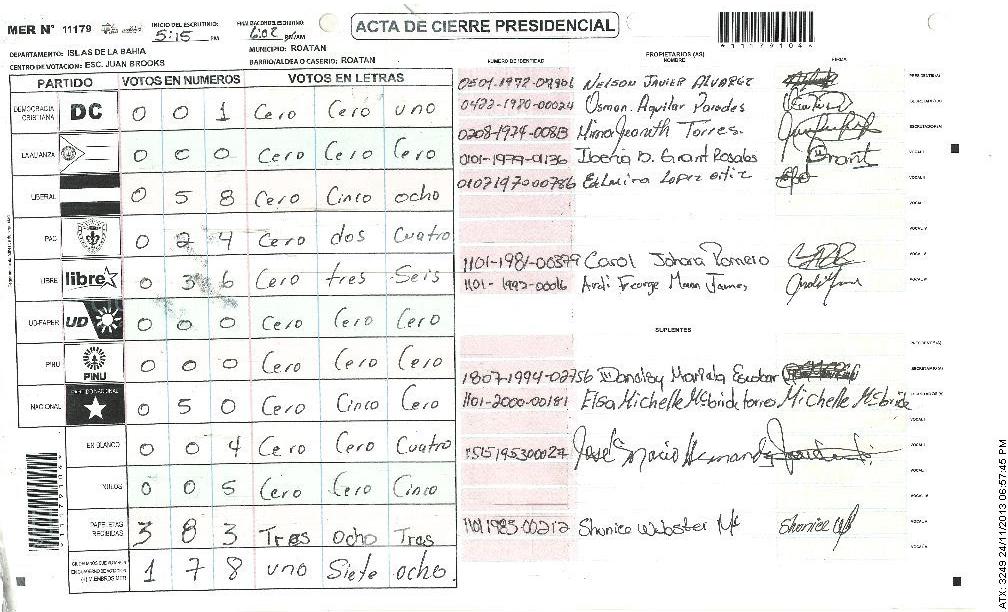 MER N° 11179 INICIO DEL ESCRUTINIO: 5:15 PM 6:02 PM/AM
ACTA DE CIERRE PRESIDENCIAL
*111791046*
DEPARTAMENTO: ISLAS DE LA BAHIA MUNICIPIO: ROATAN
CENTRO DE VOTACION: ESC. JUAN BROOKS BARRIO/ALDEA O CASERIO: ROATAN
PARTIDO VOTOS EN NUMEROS VOTOS EN LETRAS
DEMOCRACIA CRISTIANA DC 0 0 1 Cero Cero uno
LA ALIANZA 0 0 0 Cero Cero Cero
LIBERAL 0 5 8 Cero Cinco ocho
PAC 0 2 4 Cero dos Cuatro
LIBRE libre 0 3 6 Cero tres Seis
UD-FAPER UD 0 0 0 Cero Cero Cero
PINU PINU 0 0 0 Cero Cero Cero
NACIONAL PARTIDO NACIONAL 0 5 0 Cero Cinco Cero
EN BLANCO 0 0 4 Cero Cero Cuatro
NULOS 0 0 5 Cero Cero Cinco
PAPELETAS RECIBIDAS 3 8 3 Tres ocho Tres
1 7 8 uno Siete ocho
NUMERO DE IDENTIDAD PROPIETARIOS (AS) NOMBRE FIRMA
NELSON JAVIER ALVAREZ PRESIDENTE(A)
0422-1980-00024 Osman Aguilar Paredes SECRETARIO(A)
Torres. ESCRUTADOR(A)
0101-1979-01136 Iberia D. Grant Rosales Grant VOCAL I
0107197000786 Edmira Lopez ortiz VOCAL II
1101-1981-00399 Carol Johana Romero
1101-1992-00016 Ardi George Mann James
SUPLENTES
PRESIDENTE(A)
1807-1994-02756 Mariela Escobar SECRETARIO(A)
1101-2000-00181 Elsa Michelle McBride torres Michelle McBride
1515195300027 José Mario Hernandez
1101 1985-00212 Shenice Webster Mc
ATX: 3249 24/11/2013 06:57:45 PM